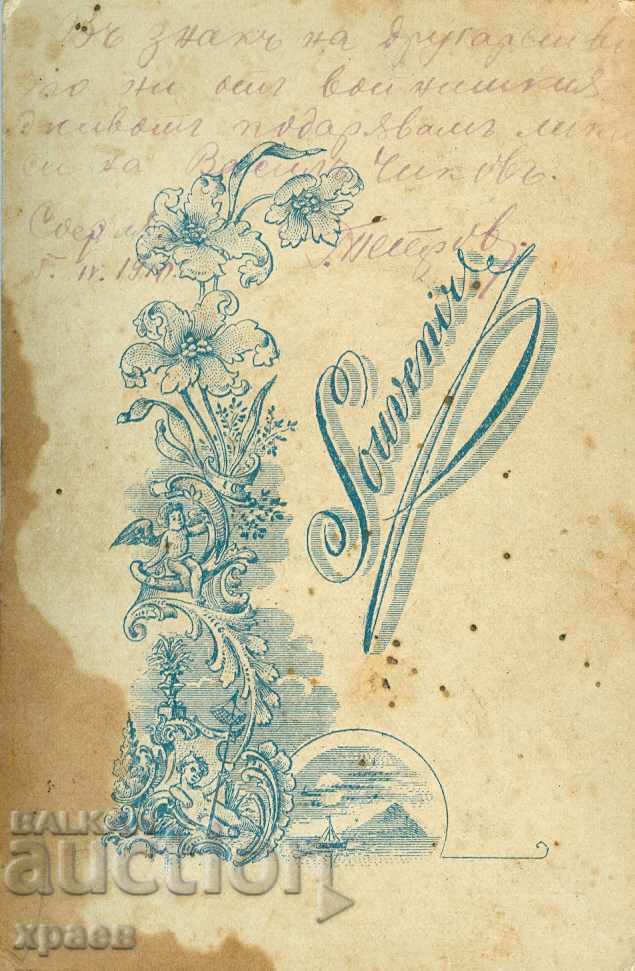 Въ знакъ на другарьшв
то ни отъ войнишкия
животъ подарявамъ лик
и на Василъ Чиковъ.
Г. Петровъ
IV. 19
Souvenir
BALKAN
auction
храев